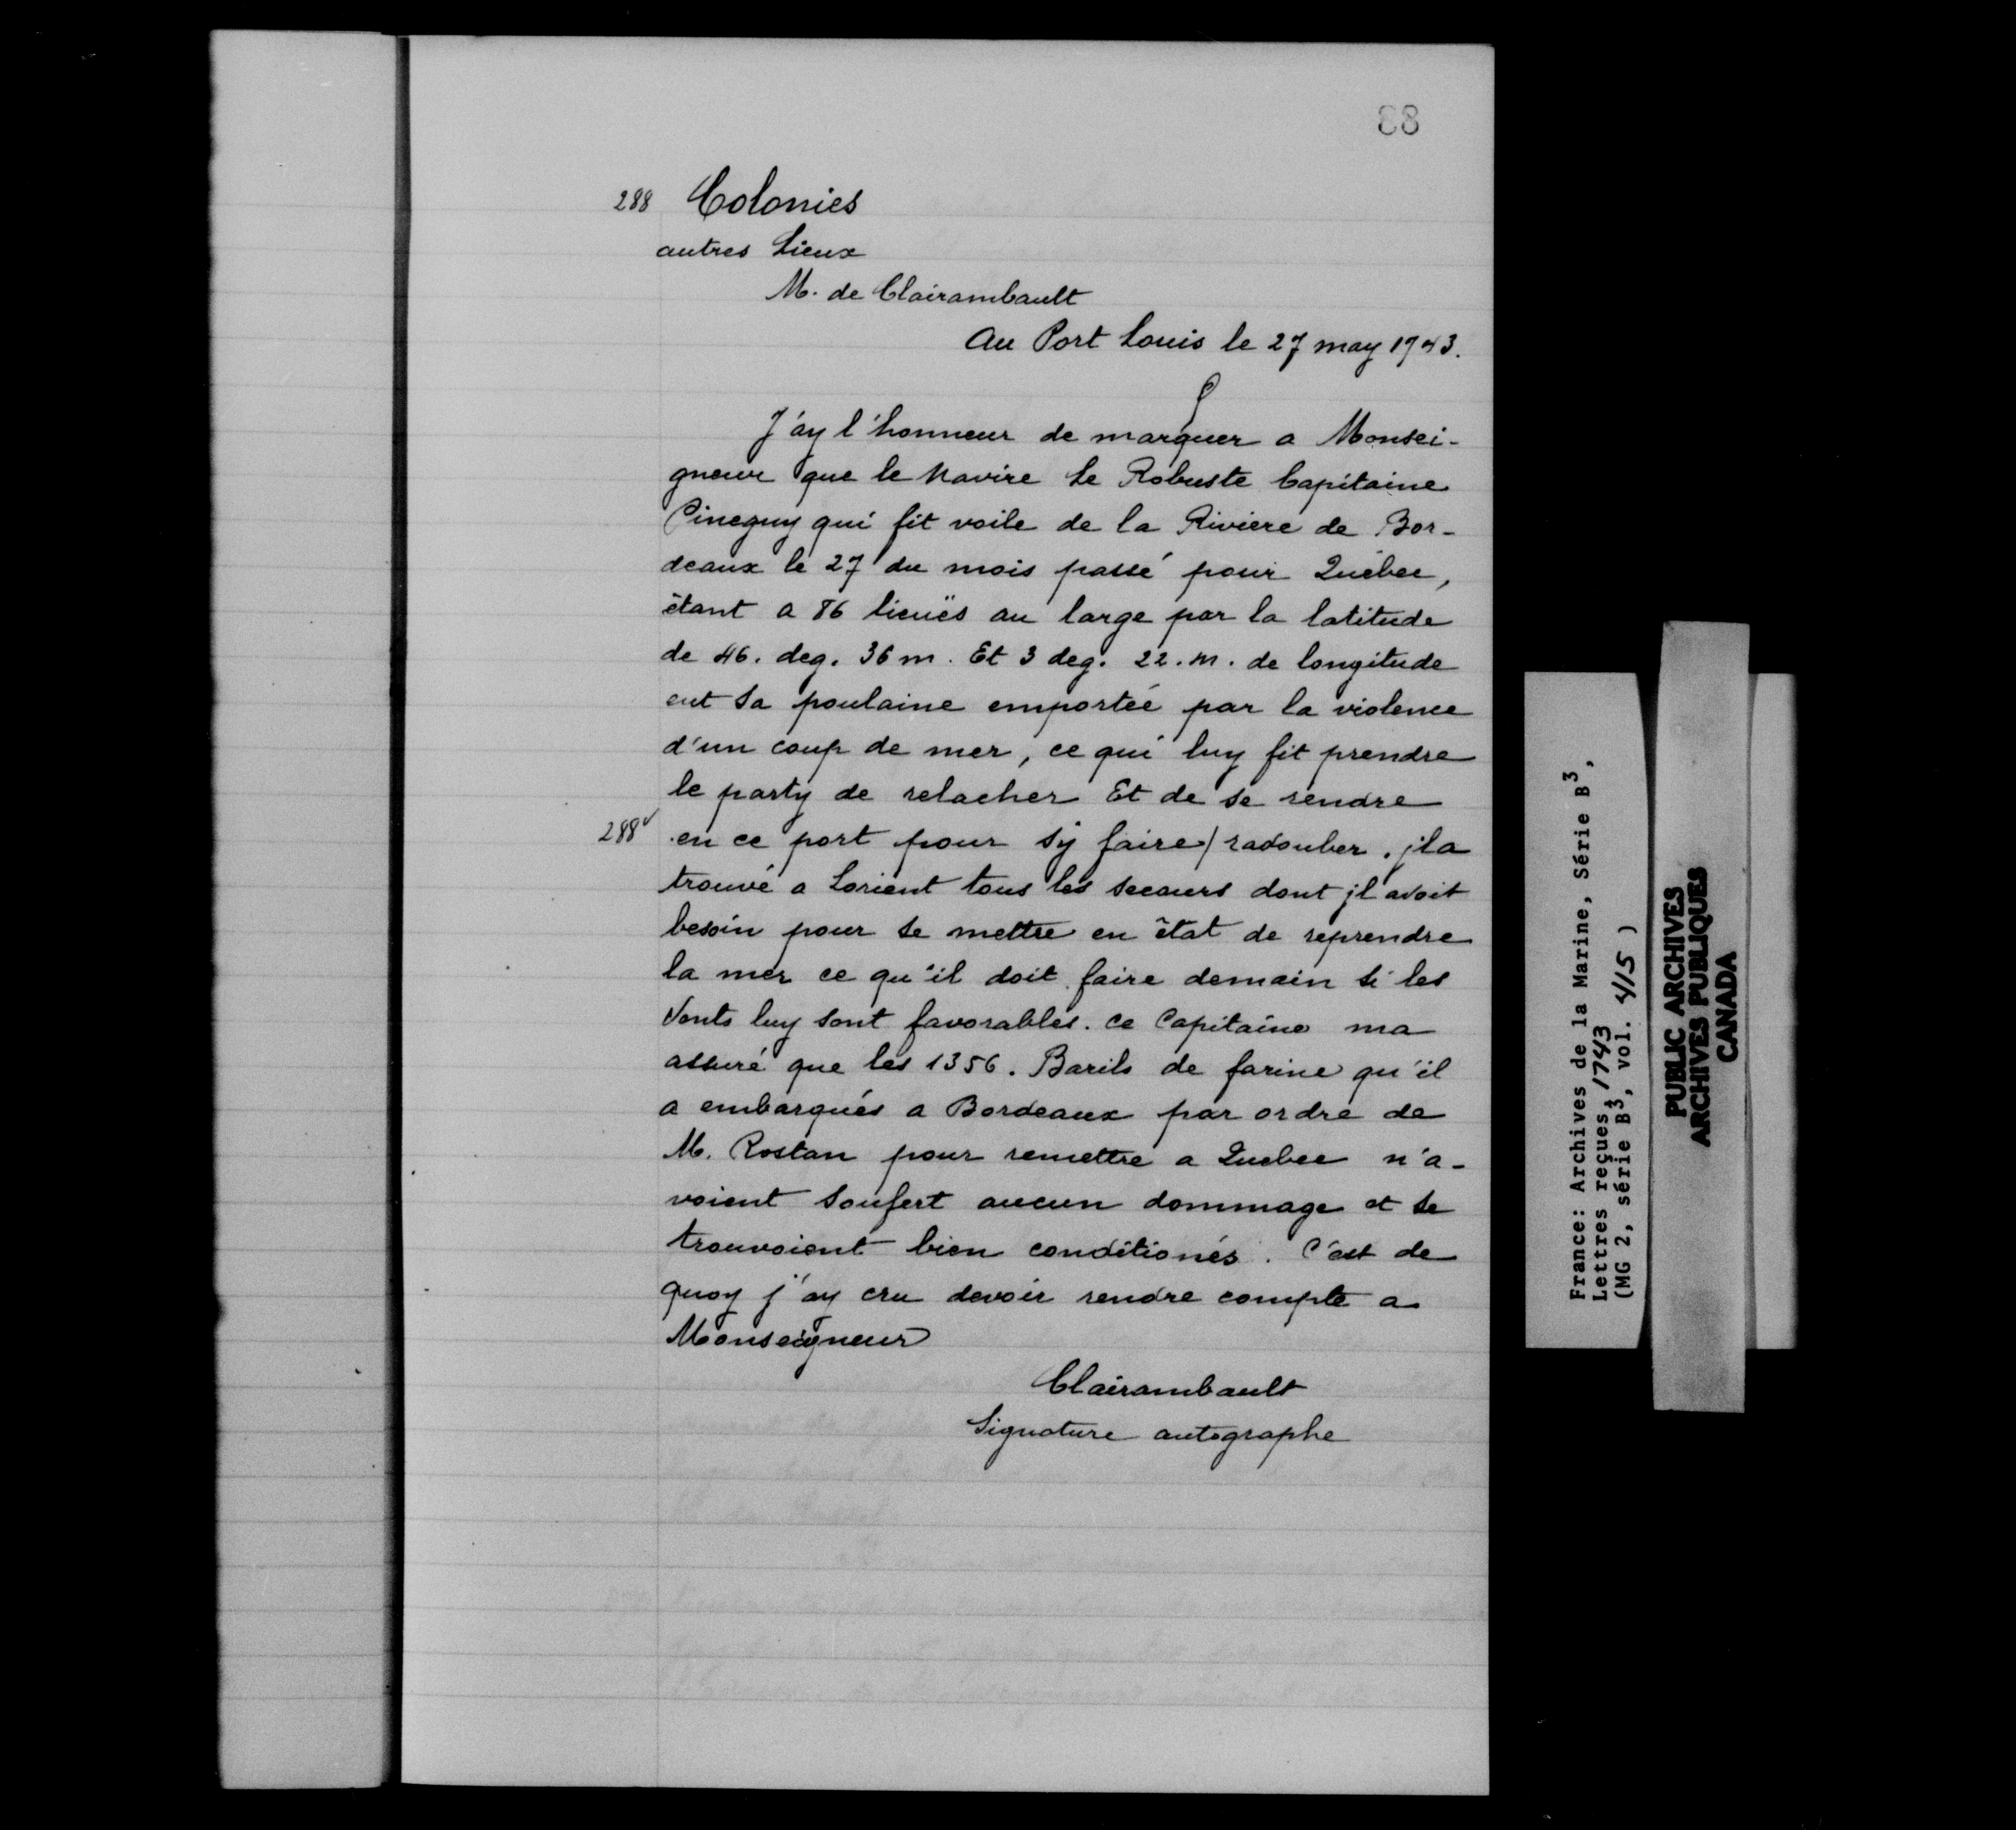 88
288 Colonies
autres Lieux
M. de Clairambault
Au Port Louis le 27 may 1743.
J'ay l'honneur de marquer a Monsei-
gneur que le Navire Le Robuste Capitaine
Cineguy qui fit voile de la Riviere de Bor-
deaux le 27 du mois passé pour Québec,
étant a 86 lieuës au large par la latitude
de 46. deg. 36 m. Et 3 deg. 22. m. de longitude
eut sa poulaine emportée par la violence
d'un coup de mer, ce qui luy fit prendre
le party de relacher Et de se rendre
288v en ce port pour s'y faire / radouber. jla
trouvé a Lorient tous les secours dont jl avoit
besoin pour se mettre en état de reprendre
la mer ce qu'il doit faire demain si les
Vents luy sont favorables. ce Capitaine ma
assuré que les 1356. Barils de farine qu'il
a embarqués a Bordeaux par ordre de
M. Rostan pour remettre a Quebec n'a-
voient soufert aucun dommage et se
trouvoient bien conditionés. C'est de
quoy j'ay cru devoir rendre compte a
Monseigneur
Clairambault
Signature autographe
France: Archives de la Marine, Série B3,
Lettres reçues, 1743
(MG 2, série B3, vol. 415 )
PUBLIC ARCHIVES
ARCHIVES PUBLIQUES
CANADA